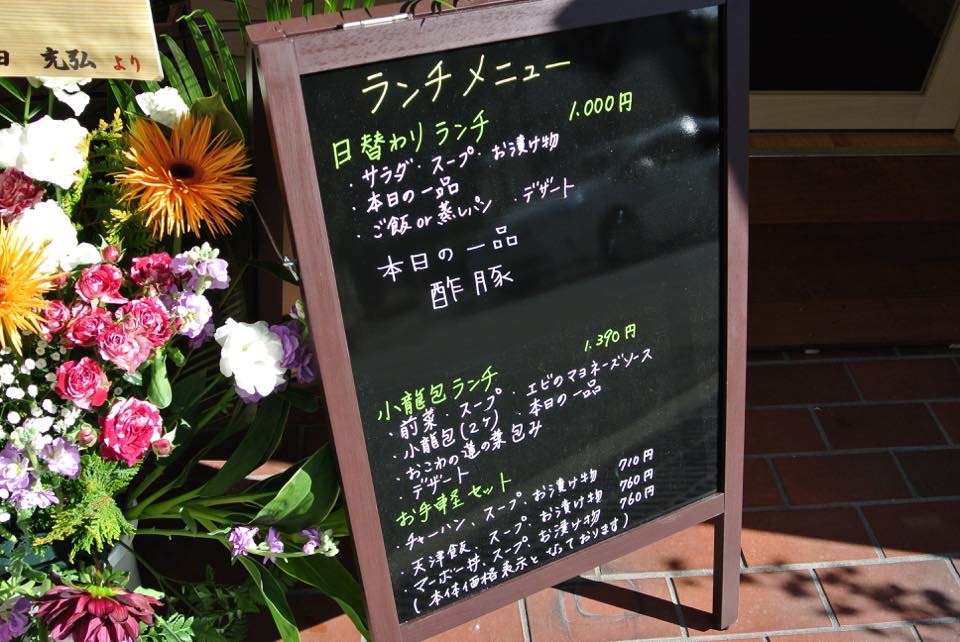 日 充弘 より
ランチメニュー
日替わりランチ 1.000円
・サラダ・スープ・お漬け物
・本日の一品
・ご飯or蒸しパン ・デザート
本日の一品
酢豚
小龍包ランチ 1.390円
・前菜・スープ・エビのマヨネーズソース
・小龍包(2ケ)・本日の一品
・おこわの蓮の葉包み
・デザート
お手軽セット
・チャーハン、スープ、お漬け物 710円
・天津飯、スープ、お漬け物 760円
・マーボー丼、スープ、お漬け物 760円
(本体価格表示となっております)